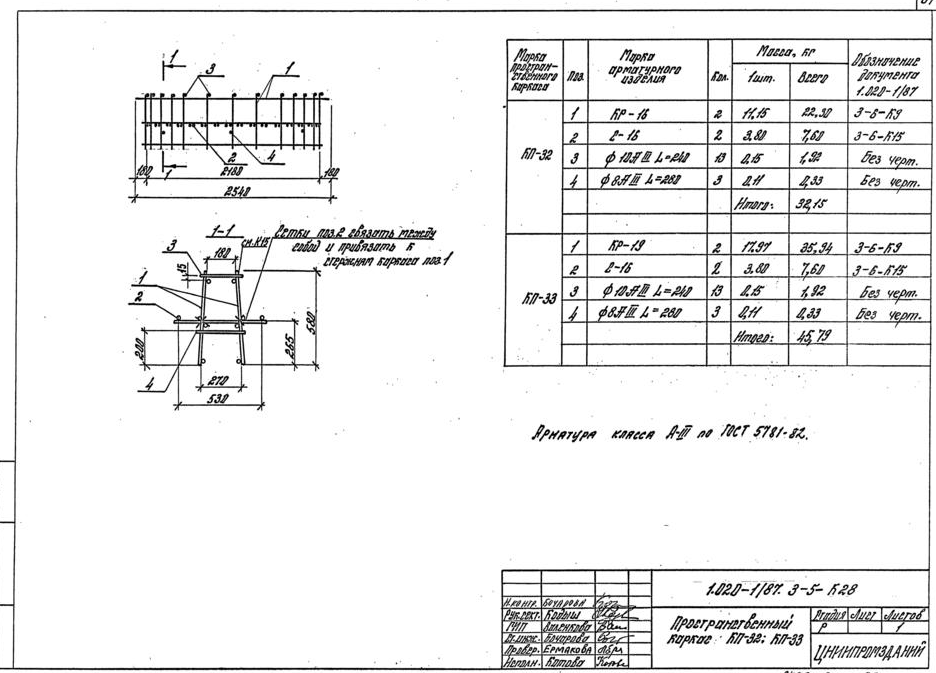 1
3
1
2
4
1
180
2180
180
2540
1-1
см. К15
Сетки поз.2 связать между
собой и привязать к
стержням каркаса поз.1
3
180
15
1
2
200
265
580
4
270
530
Марка пространственного каркаса Поз. Марка арматурного изделия Кол. Масса, кг Обозначение документа 1.020-1/87
1шт. Всего
КП-32
1 КР-16 2 11,15 22,30 3-6-К9
2 С-16 2 3,80 7,60 3-6-К15
3 ф10АIII L=240 13 0,15 1,92 Без черт.
4 ф8АIII L=280 3 0,11 0,33 Без черт.
Итого: 32,15
КП-33
1 КР-19 2 17,97 35,94 3-6-К9
2 С-16 2 3,80 7,60 3-6-К15
3 ф10АIII L=240 13 0,15 1,92 Без черт.
4 ф8АIII L=280 3 0,11 0,33 Без черт.
Итого: 45,79
Арматура класса А-III по ГОСТ 5781-82.
1.020-1/87. 3-5-К28
Н.контр. Бочарова
Рук.сект. Кодыш
ГИП
Ст.инж. Бочарова
Провер. Ермакова
Исполн. Котова
Пространственный
каркас КП-32; КП-33
Стадия Лист Листов
Р 1
ЦНИИПРОМЗДАНИЙ